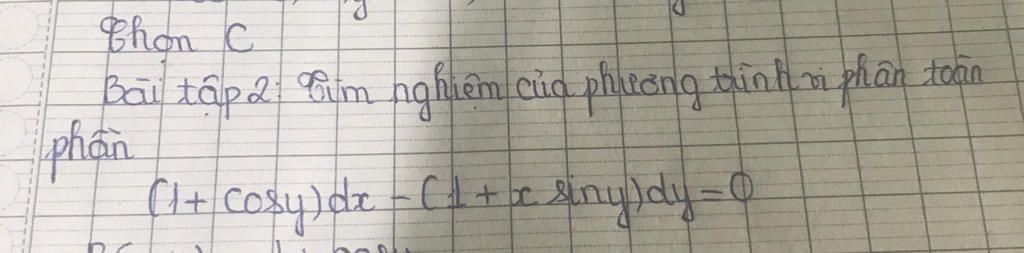 Chọn C
Bài tập 2: Tìm nghiệm của phương trình vi phân toàn
phần
(1 + cosy)dx - (1 + x siny)dy = 0